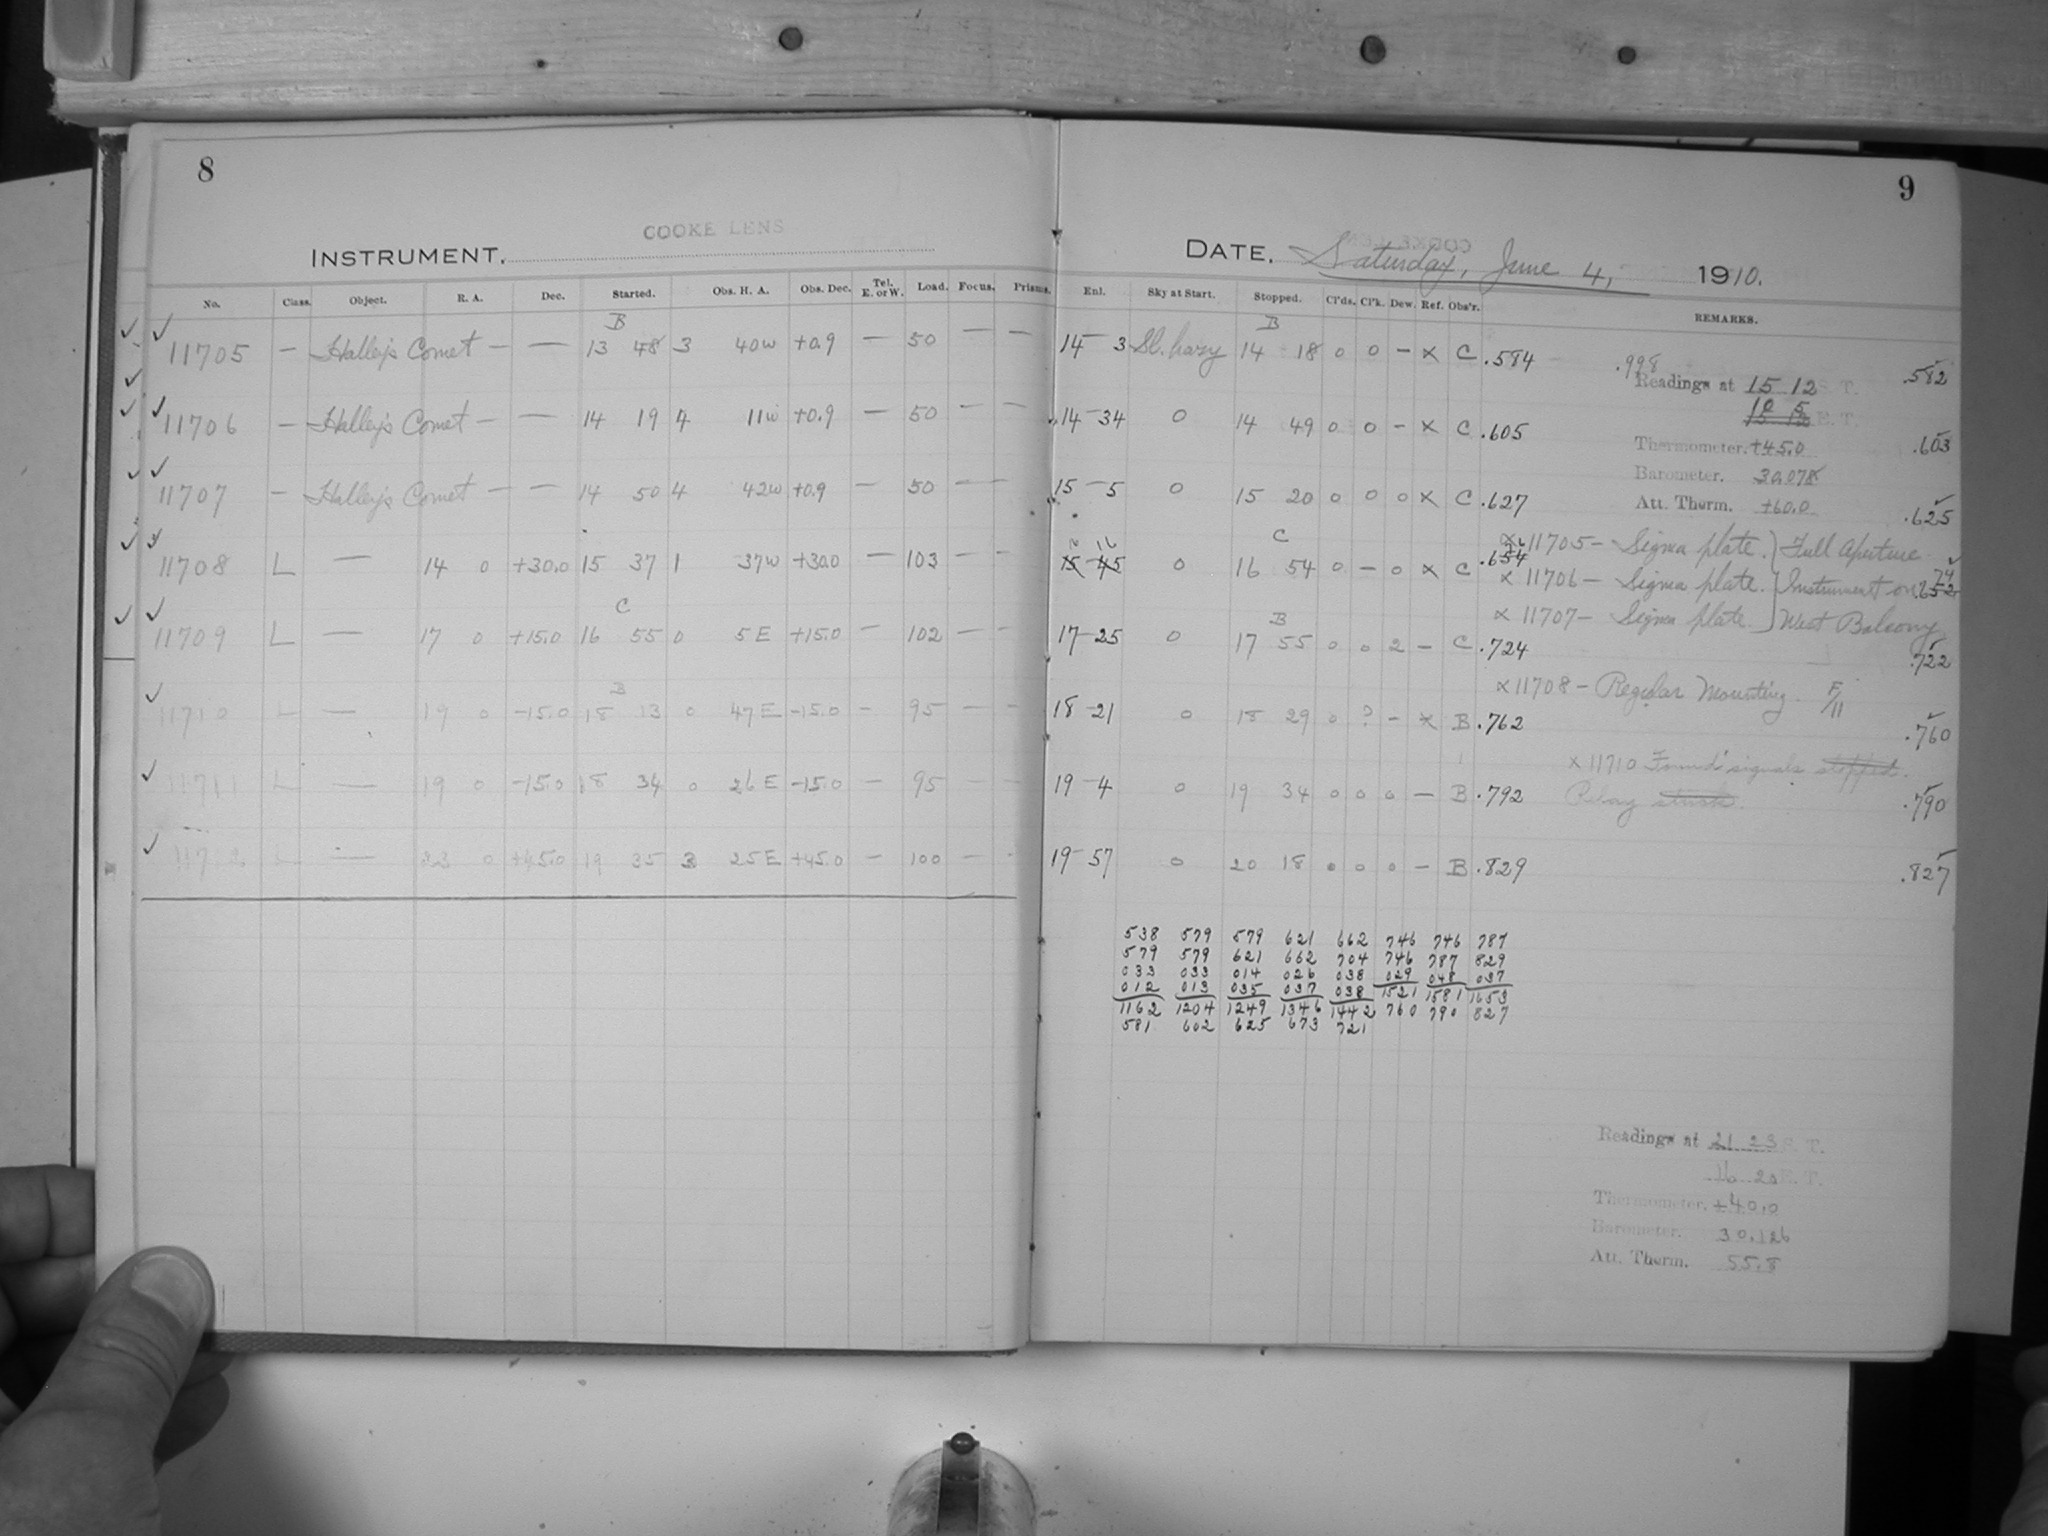 8
COOKE LENS
INSTRUMENT.
No. Class. Object. R. A. Dec. Started. Obs. H. A. Obs. Dec. Tel. E. or W. Load. Focus. Prisms.
B
11705 — Halley's Comet — — 13 48 3 40W +0.9 — 50 — —
11706 — Halley's Comet — — 14 19 4 11W +0.9 — 50 — —
11707 — Halley's Comet — — 14 50 4 42W +0.9 — 50 — —
11708 L — 14 0 +30.0 15 37 1 37W +30.0 — 103 — —
C
11709 L — 17 0 +15.0 16 55 0 5E +15.0 — 102 — —
B
11710 L — 19 0 -15.0 18 13 0 47E -15.0 — 95 — —
11711 L — 19 0 -15.0 18 34 0 26E -15.0 — 95 — —
11712 L — 23 0 +45.0 19 35 3 25E +45.0 — 100 —
9
DATE. Saturday, June 4, 1910.
Enl. Sky at Start. Stopped. Cl'ds. Cl'k. Dew. Ref. Obs'r. REMARKS.
B
14-3 Sl. hazy 14 18 0 0 - x C .584 .998 .582
14-34 0 14 49 0 0 - x C .605 .603
15-5 0 15 20 0 0 0 x C .627 .625
C
16
15-45 0 16 54 0 - 0 x C .654
B
17-25 0 17 55 0 0 2 - C .724 .722
18-21 0 18 29 0 ? - x B .762 .760
19-4 0 19 34 0 0 0 - B .792 .790
19-57 0 20 18 0 0 0 - B .829 .827
Readings at 15 12 S. T.
10 5 E. T.
Thermometer. +45.0
Barometer. 30.078
Att. Therm. +60.0
x 11705 - Sigma plate. } Full Aperture
x 11706 - Sigma plate. } Instrument on
x 11707 - Sigma plate } West Balcony
x 11708 - Regular Mounting. F/11
x 11710 Found signals stopped.
Relay stuck.
538 579 579 621 662 746 746 787
579 579 621 662 704 746 787 829
033 033 014 026 038 029 048 037
012 013 035 037 038 1521 1581 1653
1162 1204 1249 1346 1442 760 790 827
581 602 625 673 721
Readings at 21 23 S. T.
16 20 E. T.
Thermometer. +40.0
Barometer. 30.126
Att. Therm. 55.8